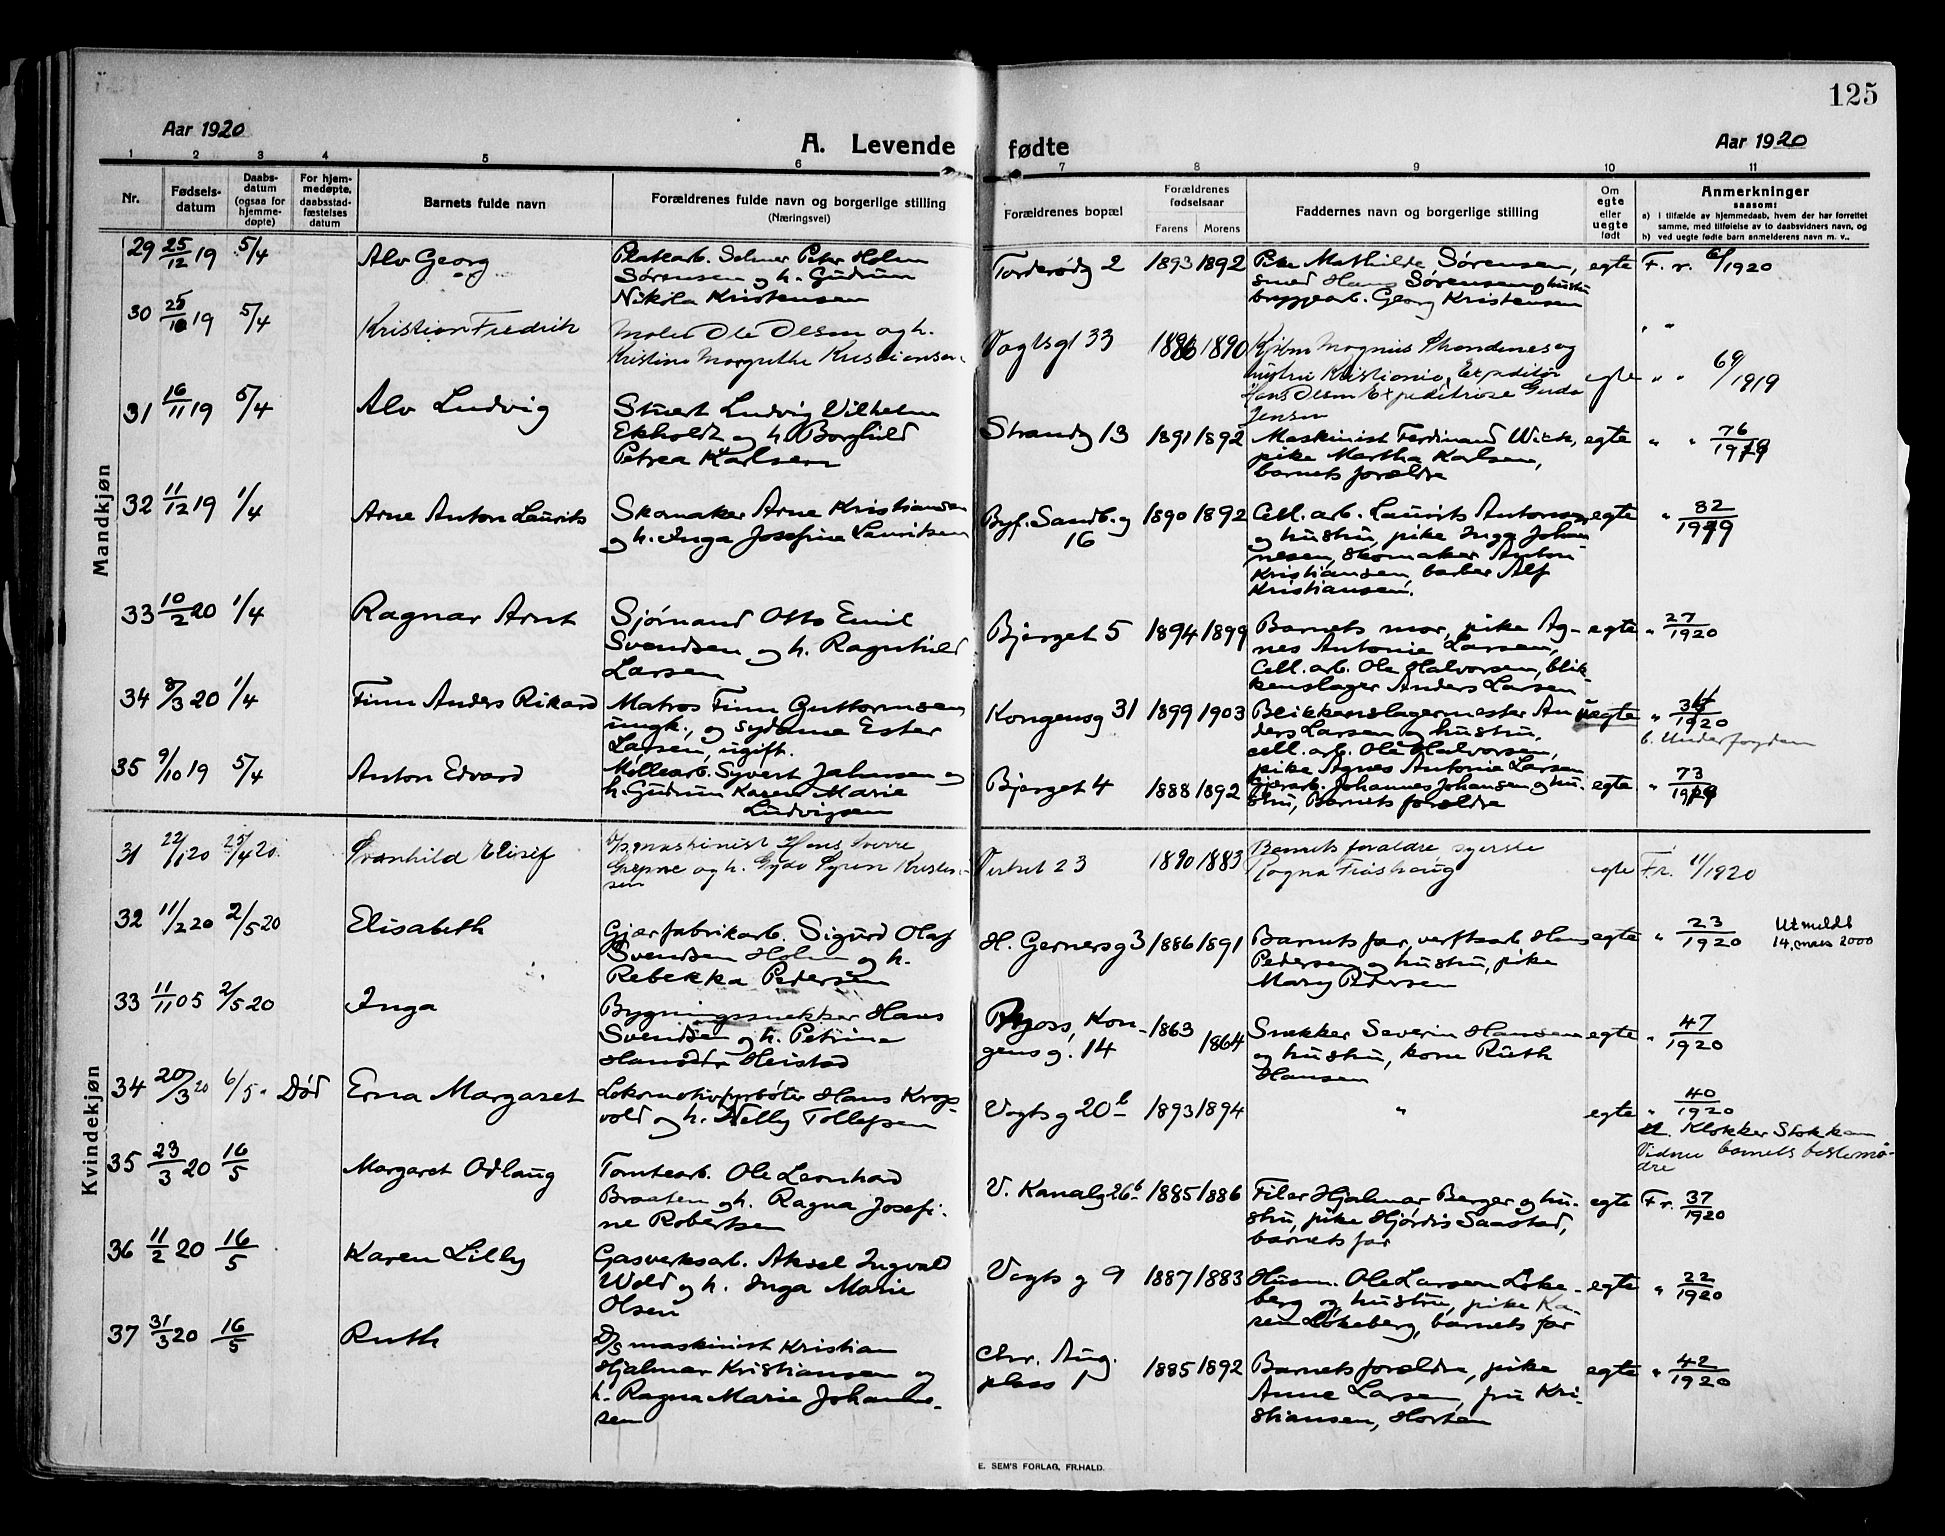 125
Aar 1920
A. Levende fødte
Aar 1920
1 2 3 4 5 6 7 8 9 10 11
Nr.
Fødsels-
datum
Daabs-
datum
(ogsaa for
hjemme-
døpte)
For hjem-
medøpte,
daabsstad-
fæstelses
datum
Barnets fulde navn
Forældrenes fulde navn og borgerlige stilling
(Næringsvei)
Forældrenes bopæl
Forældrenes
fødselsaar
Farens Morens
Faddernes navn og borgerlige stilling
Om
egte
eller
uegte
født
Anmerkninger
saasom:
a) i tilfælde av hjemmedaab, hvem der har forrettet
samme, med tilføielse av to daabsvidners navn, og
b) ved uegte fødte barn anmelderens navn m. v..
Mandkjøn
29 25/12 19 5/4 Alv Georg
Platearb. Selmer Peter Holm
Sørensen og h. Gudrun
Nikola Kristensen
Torderødg 2 1893 1892
Pike Mathilde Sørensen,
smed Hans Sørensen og hustru
bryggearb. Georg Kristensen
egte F. r. 6/1920
30 25/10 19 5/4 Kristian Fredrik
Maler Ole Olsen og h.
Kristine Margrethe Kristiansen
Vogtsgt 33 1886 1890
Magnus
hustru Kristiania, Expeditør
Hans Olsen Expeditrise
Jensen
egte " " 69/1919
31 16/11 19 5/4 Alv Ludvig
Stuert Ludvig Vilhelm
Ekholdt og h. Borghild
Petrea Karlsen
Strandg 13 1891 1892
Maskinist Ferdinand
pike Martha Karlsen,
barnets forældre
egte " " 76/1919
32 11/12 19 1/4 Arne Anton Laurits
Skomaker Arne Kristiansen
og h. Inga Josefine Lauritsen
Byf. Sandb. g
16
1890 1892
Cell. arb. Laurits Antonsen
og hustru, pike Inga Johan-
nesen, skomaker Anton
Kristiansen, barber Alf
Kristiansen.
egte " 82/1919
33 10/2 20 1/4 Ragnar Arnt
Sjømand Otto Emil
Svendsen og h. Ragnhild
Larsen
Bjerget 5 1894 1899
Barnets mor, pike Ag-
nes Antonie Larsen,
Cell. arb. Ole Halvorsen, blik-
kenslager Anders Larsen
egte " 27/1920
34 8/3 20 1/4 Finn Anders Rikard
Matros Finn Guttormsen
ungk., og sydame Ester
Larsen, ugift.
Kongensg 31 1899 1903
Blikkenslagermester An-
ders Larsen og hustru,
cell. arb. Ole Halvorsen,
pike Agnes Antonie Larsen
uegte " 1920
b. Underfogden
35 9/10 19 5/4 Anton Edvard
Møllearb. Syvert Johnsen og
h. Gudrun Karen Marie
Ludvigsen
Bjerget 4 1888 1892
Gjærarb. Johannes Johansen og hu-
stru, Barnets forældre
egte " 73/1919
Kvindekjøn
31 22/1 20 25/4 20. Svanhild Elisif
D/s maskinist Hans Sverre
Grepne og h. Gyda Syren Kristen-
sen
Verket 23 1890 1883
Barnets forældre syerske
Ragna Friishaug
egte Fr. 11/1920
32 11/2 20 2/5 20 Elisabeth
Gjærfabrikarb. Sigurd Olaf
Svendsen Holm og h.
Rebekka Pedersen
H. Gernersg 3 1886 1891
Barnets far, verftsarb Hans
Pedersen og hustru, pike
Mary Pedersen
egte " 23/1920
Utmeldt
14. mars 2000
33 11/11 05 2/5 20 Inga
Bygningssnekker Hans
Svendsen og h. Petrine
Hansdtr Heistad
Moss, Kon-
gens g. 14
1863 1864
Snekker Severin Hansen
og hustru, kone Ruth
Hansen
egte " 47/1920
34 20/3 20 6/5 - Død Erna Margaret
Lokomotivfyrbøter Hans Krog-
vold og h. Nelly Tollefsen
Vogts g 20 b 1893 1894
"
egte " 40/1920
Klokker Stokkan
Vidner barnets bestemø-
dre
35 23/3 20 16/5 Margaret Odlaug
Tomtearb. Ole Leonhard
Braaten og h. Ragna Josefi-
ne Robertsen
V. Kanalg 26 b 1885 1886
Filer Hjalmar Berger og hu-
stru, pike Hjørdis Saastad,
barnets far
egte Fr. 37/1920
36 11/2 20 16/5 Karen Lilly
Gasverksarb. Aksel Ingvald
Wold og h. Inga Marie
Olsen
Vogts g 9 1887 1883
Husm. Ole Larsen Løke-
berg og hustru, pike Ka-
ren Løkeberg, barnets far
egte " 22/1920
37 31/3 20 16/5 Ruth
D/S maskinist Kristian
Hjalmar Kristiansen og
h. Ragna Marie Johannes-
sen
Chr. Aug.
plass 1
1885 1892
Barnets forældre, pike
Anne Larsen, fru Kri-
stiansen, Horten
egte " 42/1920
E. SEM'S FORLAG, FR.HALD.